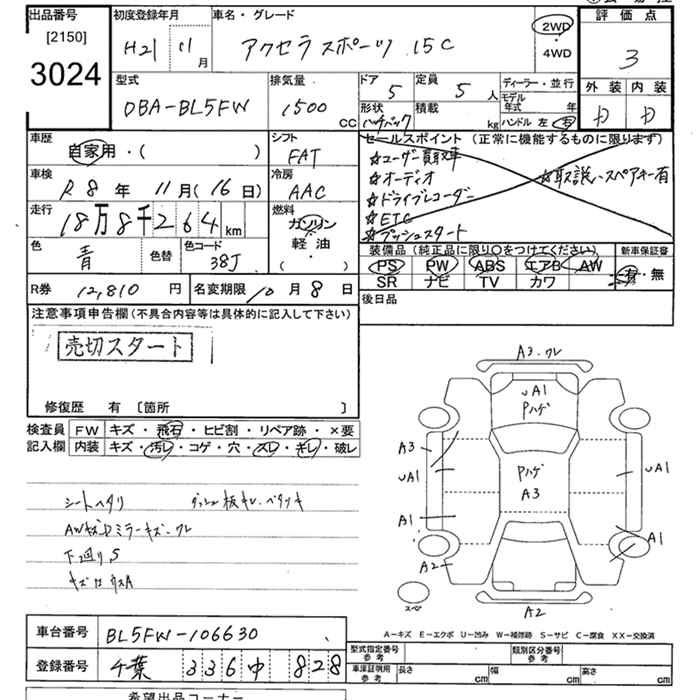 出品番号 初度登録年月 車名・グレード 評価点
[2150]
3024
H21 11月 アクセラスポーツ 15C 2WD ・4WD 3
型式 排気量 ドア 定員 ディーラー・並行 外装 内装
DBA-BL5FW 1500 CC 5 5人 モデル年式 年 D D
形状 積載
ハッチバック kg ハンドル 左・右
車歴 シフト セールスポイント (正常に機能するものに限ります)
自家用・( ) FAT ☆ユーザー買取車
車検 冷房 ☆オーディオ ☆取説、スペアキー有
R8年 11月(16日) AAC ☆ドライブレコーダー
走行 燃料 ☆ETC
18万8千264km ガソリン ☆プッシュスタート
色 色替 色コード 軽油・ 装備品 (純正品に限り○をつけてください) 新車保証書
青 38J ( ) PS PW ABS エアB AW 有・無
SR ナビ TV カワ
R券 12,810円 名変期限 10月8日 後日品
注意事項申告欄(不具合内容等は具体的に記入して下さい)
売切スタート
修復歴 有 〔箇所 〕
検査員 FW キズ・飛石・ヒビ割・リペア跡・×要
記入欄 内装 キズ・汚レ・コゲ・穴・スレ・キレ・破レ
シートヘタリ ダッシュ板キレ・ベタツキ
AWキズDミラーキズ・ワレ
下廻りS
キズ
A3・ワレ
UA1
Pハゲ
A3
UA1
Pハゲ
A3
UA1
A1
A1
A2
スペア
A2
A-キズ E-エクボ U-凹み W-補修跡 S-サビ C-腐食 XX-交換済
車台番号 BL5FW-106630
登録番号 千葉 336 中 828
型式指定番号 参考 類別区分番号 参考
車庫証明用 参考 長さ cm 幅 cm 高さ cm
希望出品コーナー